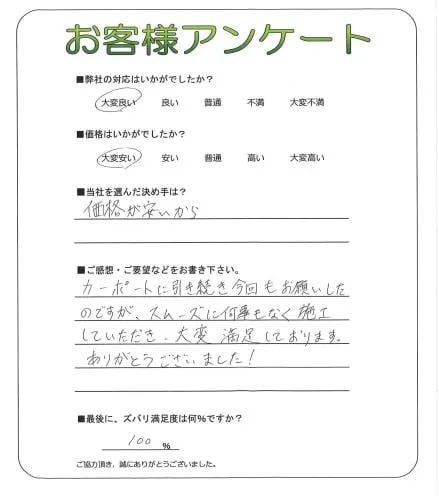 お客様アンケート
■弊社の対応はいかがでしたか?
大変良い 良い 普通 不満 大変不満
■価格はいかがでしたか?
大変安い 安い 普通 高い 大変高い
■当社を選んだ決め手は?
価格が安いから
■ご感想・ご要望などをお書き下さい。
カーポートに引き続き今回もお願いした
のですが、スムーズに何事もなく施工
していただき、大変満足しております。
ありがとうございました!
■最後に、ズバリ満足度は何%ですか?
100 %
ご協力頂き、誠にありがとうございました。